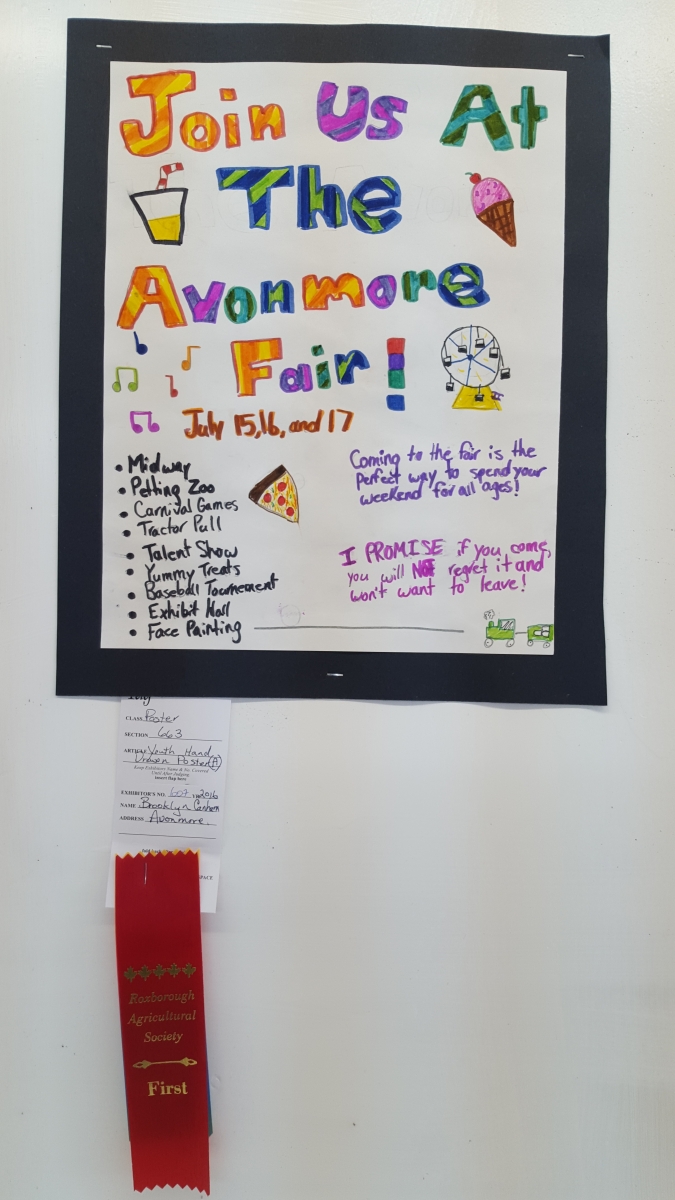 Join Us At
The
Avonmore
Fair!
July 15, 16, and 17
• Midway
• Petting Zoo
• Carnival Games
• Tractor Pull
• Talent Show
• Yummy Treats
• Baseball Tournement
• Exhibit Hall
• Face Painting
Coming to the fair is the
perfect way to spend your
weekend for all ages!
I PROMISE if you come,
you will NOT regret it and
won't want to leave!
CLASS Poster
SECTION 663
ARTICLE Youth Hand
Drawn Poster (A)
Keep Exhibitor Name & No. Covered
Until After Judging
EXHIBITOR'S NO. 607 2016
NAME Brooklyn
ADDRESS Avonmore.
SPACE
Roxborough
Agricultural
Society
First